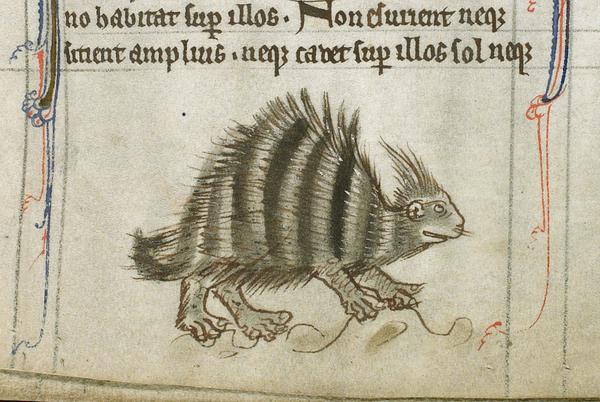 no habitat suꝑ illos. Non esurient neqꝫ
sitient amplius. neqꝫ cadet suꝑ illos sol neqꝫ